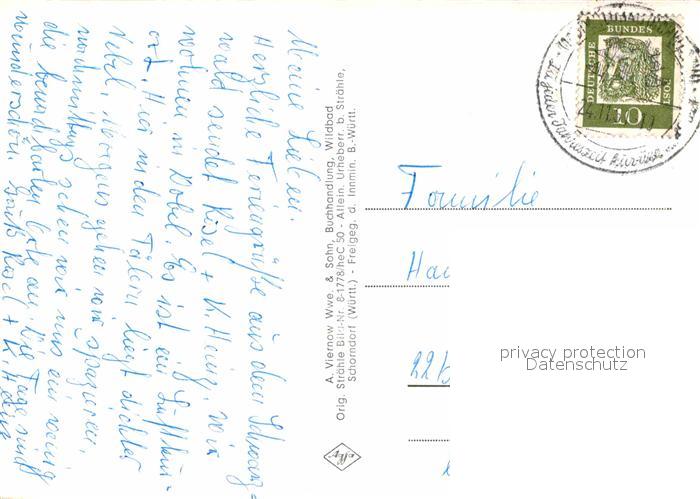 Meine Lieben.
Herzliche Feriengrüße aus dem Schwarz=
wald sendet Lisel + K. Heinz, wir
wohnen in Dobel. Es ist ein Luftkur=
ort. Hier in den Tälern liegt dichter
Nebel, Morgens gehen wir spazieren,
nachmittags sehen wir uns ein wenig
die benachbarten Orte an. Die Tage sind
wunderschön. Gruß Lisel + K. Heinz
A. Viernow Wwe. & Sohn, Buchhandlung, Wildbad
Orig. Strähle Bild-Nr. 8-1778/heC 50 - Allein. Urheberr. b. Strähle,
Schorndorf (Württ.) - Freigeg. d. Innmin. B.-Württ.
DEUTSCHE BUNDESPOST
10
zu jeder Jahreszeit
Familie
Ha
22b
privacy protection
Datenschutz